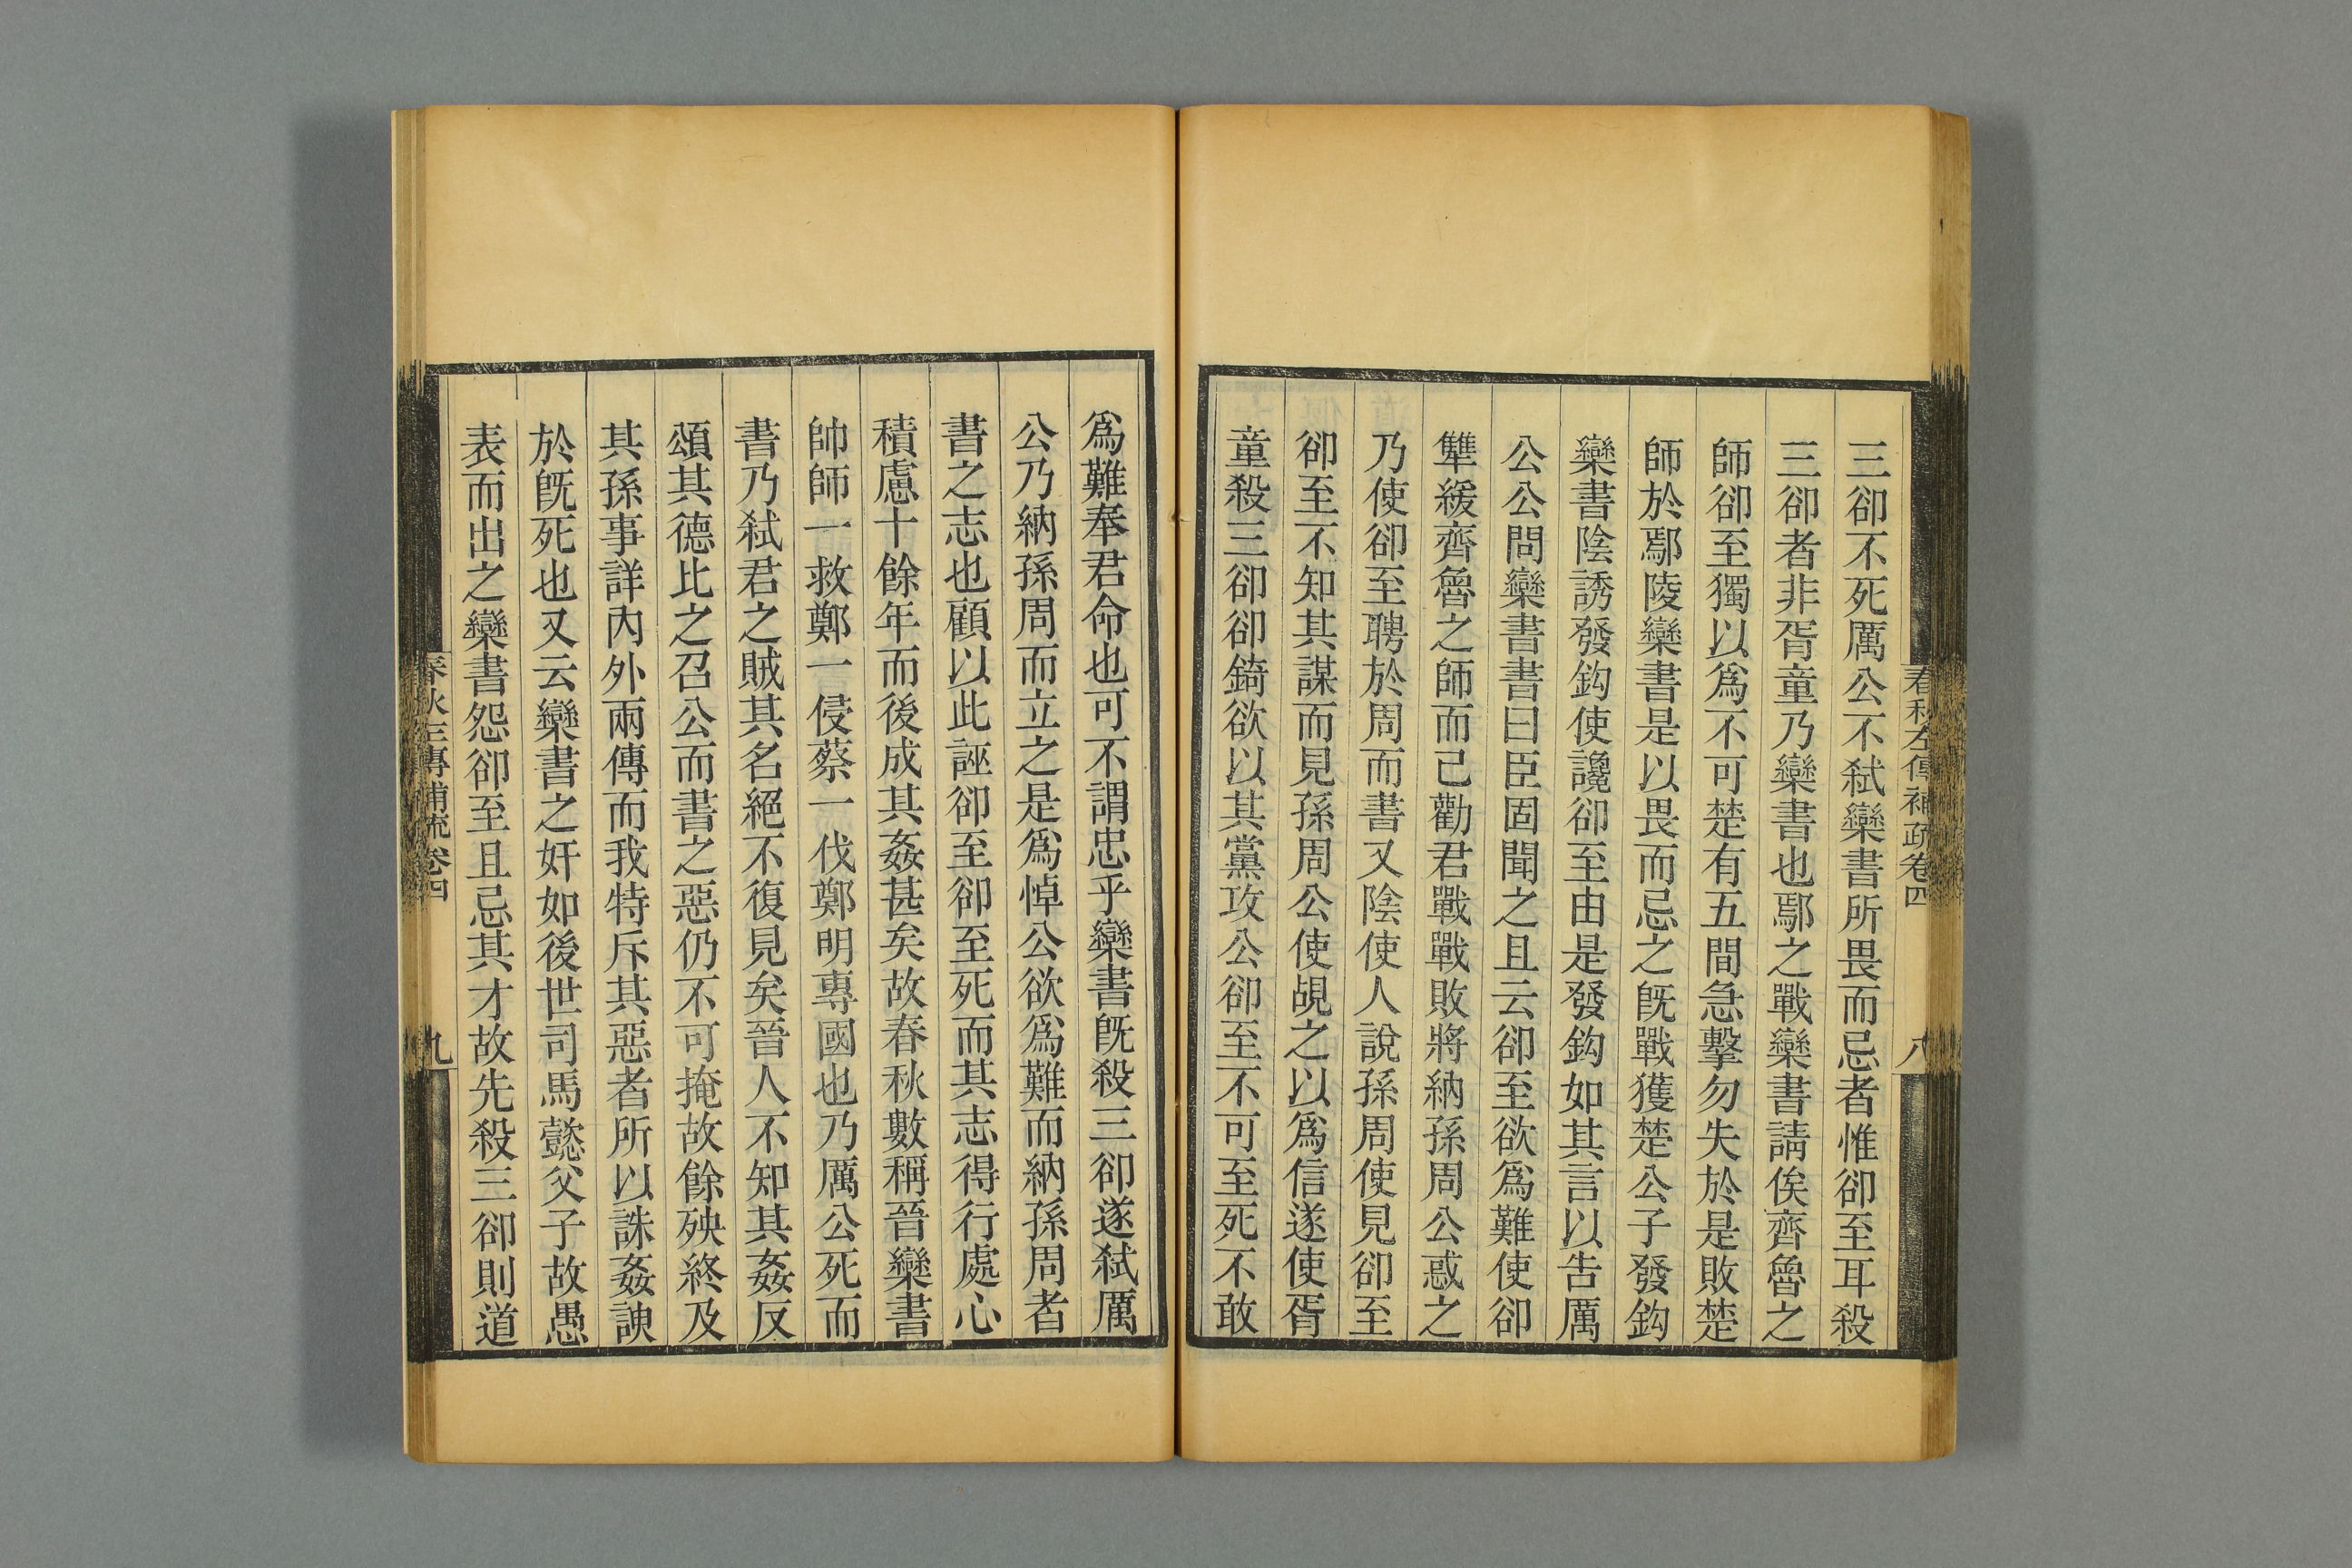 春秋左傳補疏卷四
八
三郤不死厲公不弑欒書所畏而忌者惟郤至耳殺
三郤者非胥童乃欒書也鄢之戰欒書請俟齊魯之
師郤至獨以爲不可楚有五間急擊勿失於是敗楚
師於鄢陵欒書是以畏而忌之旣戰獲楚公子發鈎
欒書陰誘發鈎使讒郤至由是發鈎如其言以告厲
公公問欒書書曰臣固聞之且云郤至欲爲難使郤
犨緩齊魯之師而己勸君戰戰敗將納孫周公惑之
乃使郤至聘於周而書又陰使人說孫周使見郤至
郤至不知其謀而見孫周公使覘之以爲信遂使胥
童殺三郤郤錡欲以其黨攻公郤至不可至死不敢
爲難奉君命也可不謂忠乎欒書旣殺三郤遂弑厲
公乃納孫周而立之是爲悼公欲爲難而納孫周者
書之志也顧以此誣郤至郤至死而其志得行處心
積慮十餘年而後成其姦甚矣故春秋數稱晉欒書
帥師一救鄭一侵蔡一伐鄭明專國也乃厲公死而
書乃弑君之賊其名絕不復見矣晉人不知其姦反
頌其德比之召公而書之惡仍不可掩故餘殃終及
其孫事詳內外兩傳而我特斥其惡者所以誅姦諛
於旣死也又云欒書之奸如後世司馬懿父子故愚
表而出之欒書怨郤至且忌其才故先殺三郤則道
春秋左傳補疏卷四
九